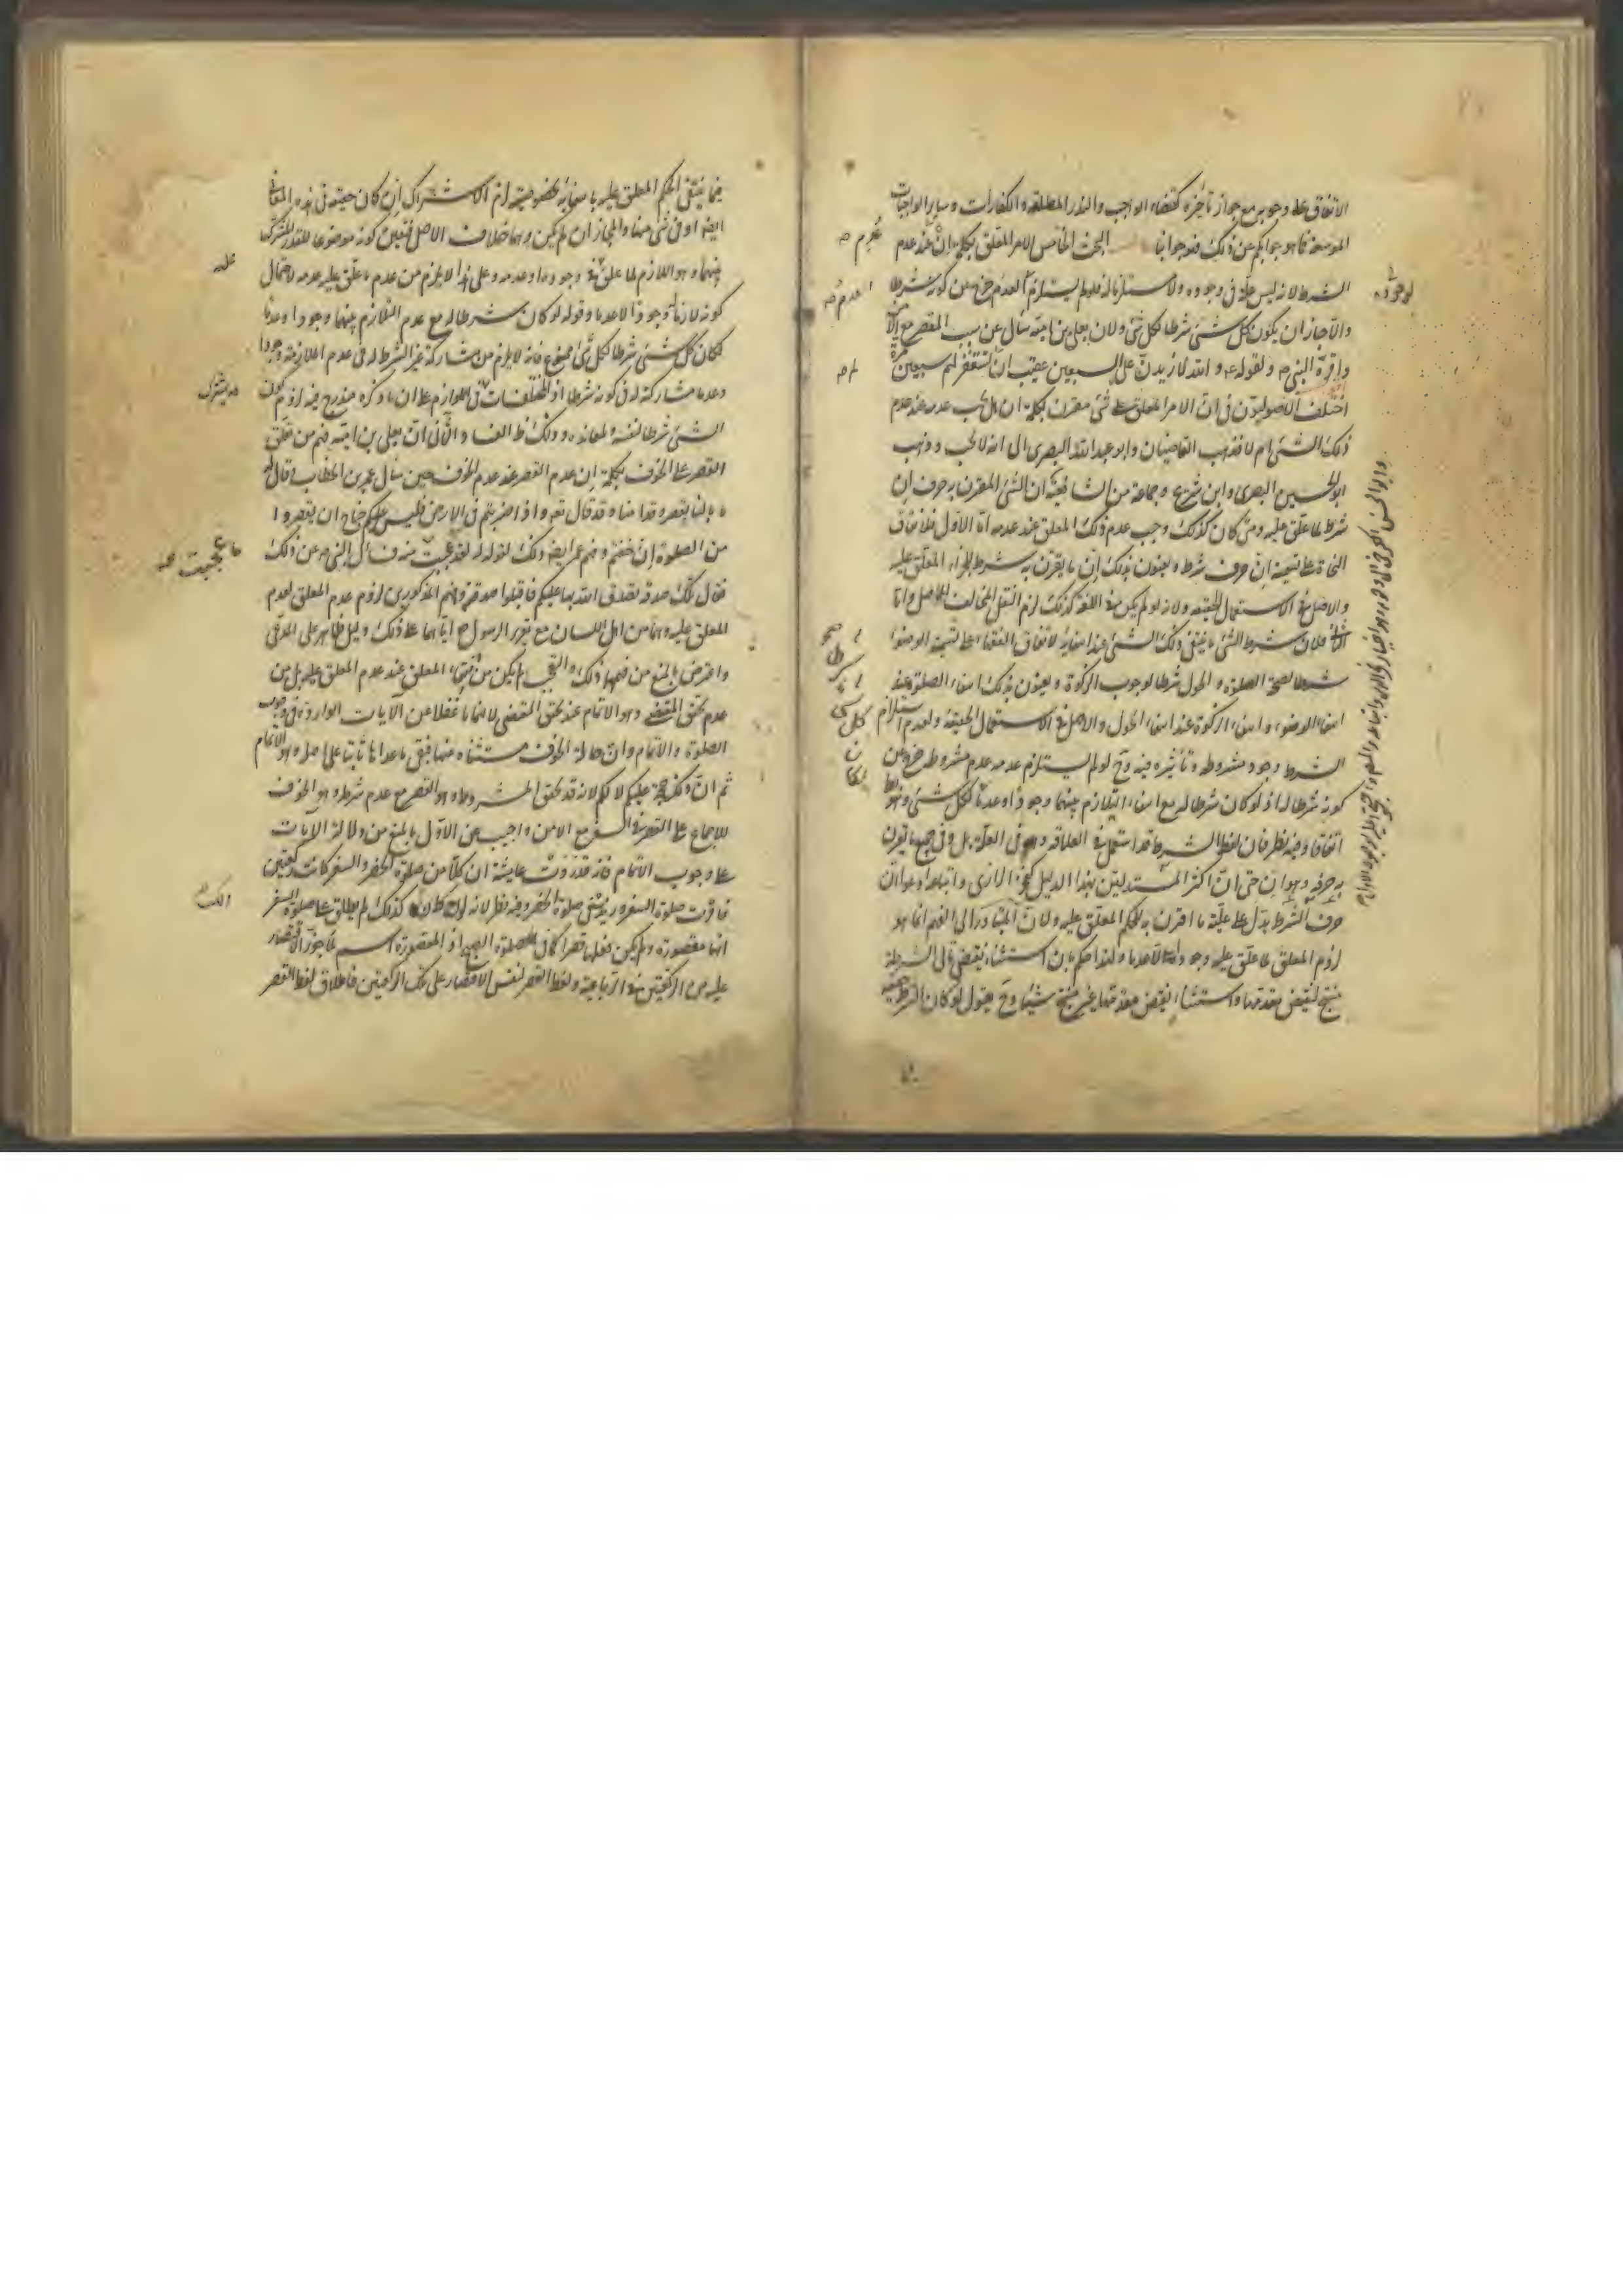 الاتفاق على وجوبه مع جواز تأخيره كقضاء الواجب والنذر المطلقة والكفارات وساير الواجبات
الموسعة فما هو جوابكم عن ذلك فهو جوابنا البحث الخامس الامر المعلق بكلمة إن عند عدم
الشرط لانه ليس علة فى وجوده ولا مستلزما له فلو لم يستلزم العدم خرج عن كونه شرطا
والا جاز ان يكون كل شئ شرطا لكل شئ ولان يعلى بن امية سأل عن سبب القصر مع الامن
واقره النبى ولقوله والله لازيدن على السبعين عقيب ان تستغفر لهم سبعين مرة
اختلف الاصوليون فى ان الامر المعلق على شئ مقرن بكلمة ان هل يجب عدمه عند عدم
ذلك الشئ ام لا فذهب القاضيان وابو عبد الله البصرى الى انه لا يجب وذهب
ابو الحسين البصرى وابن شريح وجماعة من الشافعية ان الشئ المقرن به حرف إن
شرط لما علق عليه ومتى كان كذلك وجب عدم ذلك المعلق عند عدمه اما الاول فلاتفاق
النحاة على تسمية ان حرف شرط ويعنون بذلك ان ما يقرن به شرط للجزاء المعلق عليه
والاصل فى الاستعمال الحقيقة ولانه لو لم يكن فى اللغة كذلك لزم النقل المخالف للاصل واما
الثانى فلان شرط الشئ ما ينتفى ذلك الشئ عند انتفائه لاتفاق الفقهاء على تسمية الوضوء
شرطا لصحة الصلوة والحول شرطا لوجوب الزكوة ويعنون بذلك انتفاء الصلوة عند
انتفاء الوضوء وانتفاء الزكوة عند انتفاء الحول والاصل فى الاستعمال الحقيقة ولعدم استلزام
الشرط وجود مشروطه وتأثيره فيه وح لو لم يستلزم عدمه عدم مشروطه خرج عن
كونه شرطا له اذ لو كان شرطا له مع انتفاء التلازم بينهما وجودا وعدما لكل شئ وهو بط
اتفاقا وفيه نظر فان لفظ الشرط قد استعمل فى العلاقة وهو فى العلة بل وفى جميع ما يقرن
به حرفه وهو ان حتى ان اكثر المستدلين بهذا الدليل كفخر الرازى واتباعه ادعوا ان
حرف الشرط يدل على علية ما اقرن به للحكم المعلق عليه ولان المتبادر الى الفهم انما هو
لزوم المعلق لما علق عليه وجودا لا عدما ولهذا حكم بان استثناء نقيض تالى الشرطية
ينتج نقيض مقدمها واستثناء نقيض مقدمها غير منتج شيئا وح يقول لو كان الشرط حقيقة
فيما ينتفى الحكم المعلق عليه بانتفائه بخصوصيته لزم الاشتراك ان كان حقيقة فى هذه المعانى
ايضا او فى شئ منها والمجاز ان لم يكن وهما خلاف الاصل فتعين كونه موضوعا للقدر المشترك
بينهما وهو اللازم لما علق به وجودا وعدمه وعلى هذا لا يلزم من عدم ما علق عليه عدمه لاحتمال
كونه لازما وجودا لا عدما وقوله لو كان شرطا له مع عدم التلازم بينهما وجودا وعدما
لكان كل شئ شرطا لكل شئ ممنوع فانه لا يلزم من مشاركة غير الشرط له فى عدم الملازمة وجودا
وعدما مشاركته له فى كونه شرطا اذ المختلفات فى اللوازم على ان ما ذكره مندرج فيه لزوم كون
الشئ شرطا لنفسه ولمعانده وذلك ظ الفساد والثانى ان يعلى بن امية فهم من تعلق
القصر على الخوف بكلمة إن عدم القصر عند عدم الخوف حين سأل عمر بن الخطاب قال له
ما بالنا نقصر وقد امنا وقد قال تعالى واذا ضربتم فى الارض فليس عليكم جناح ان تقصروا
من الصلوة إن خفتم وفهم عمر ايضا ذلك لقوله له لقد عجبت منه فسأل النبى عن ذلك
فقال تلك صدقة تصدق الله بها عليكم فاقبلوا صدقته وفهم المذكورين لزوم عدم المعلق لعدم
المعلق عليه وهما من اهل اللسان مع تقرير الرسول ع اياهما على ذلك دليل ظاهر على المدعى
واعترض بالمنع من فهمهما ذلك والتعجب لم يكن من انتفاء المعلق عند عدم المعلق عليه بل من
عدم تحقق المقتضى وهو الاتمام عند تحقق المقتضى لانهما عقلا من الآيات الواردة فى وجوب
الصلوة والاتمام وان حالة الخوف مستثناة منها فبقى ما عداها ثابتا على اصله وهو الاتمام
ثم ان ذلك حجة عليكم لا لكم لانه قد تحقق المشروط وهو القصر مع عدم شرطه وهو الخوف
للاجماع على القصر فى السفر مع الامن واجيب عن الاول بالمنع من دلالة الآيات
على وجوب الاتمام فانه قد روت عايشة ان كلا من صلوة الحضر والسفر كانت ركعتين
فاقرت صلوة السفر وزيد فى صلوة الحضر وفيه نظر لانه لو كان كذلك لم يطلق على صلوة السفر
انها مقصورة ولم يكن فعلها قصرا
عليه من الركعتين فى الرباعية ولفظ القصر لنفس الاقتصار على تلك الركعتين فاطلاق لفظ القصر